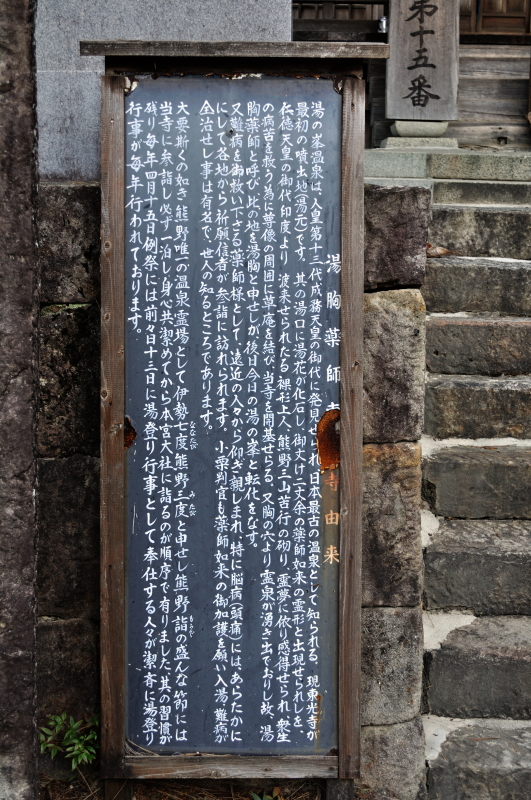 第十五番
湯胸薬師
寺由来
湯の峯温泉は、人皇第十三代成務天皇の御代に発見せられ、日本最古の温泉として知られる、現東光寺が
最初の噴出地(湯元)です。其の湯口に湯花が化石し、御丈け二丈余の薬師如来の霊形と出現せられしを、
仁徳天皇の御代印度より渡来せられたる裸形上人、熊野三山苦行の砌り、霊夢に依り感得せられ、衆生
の病苦を救う為に尊像の周囲に草庵を結び当寺を開基せらる。又胸の穴より霊泉が湧き出でおりし故、湯
胸薬師と呼び此の地を湯胸と申せしが後日今日の湯の峯と転化をなす。
又難病を御救い下さる薬師様として、遠近の人々から仰ぎ親しまれ、特に脳病(頭痛)には、あらたかに
にして各地から祈願信者が参詣に訪れられます。小栗判官も薬師如来の御加護を願い入湯、難病が
全治せし事は有名で、世人の知るところであります。
大要斯くの如き熊野唯一の温泉霊場として伊勢七度熊野三度と申せし熊野詣の盛んな節には
ななたび
みたび
もうで
当寺に参詣し必ず一泊し身心共潔めてから本宮大社に詣るのが順序で有りました其の習慣が
残り毎年四月十五日例祭には前々日十三日に湯登り行事として奉仕する人々が潔斉に湯登り
行事が毎年行われております。